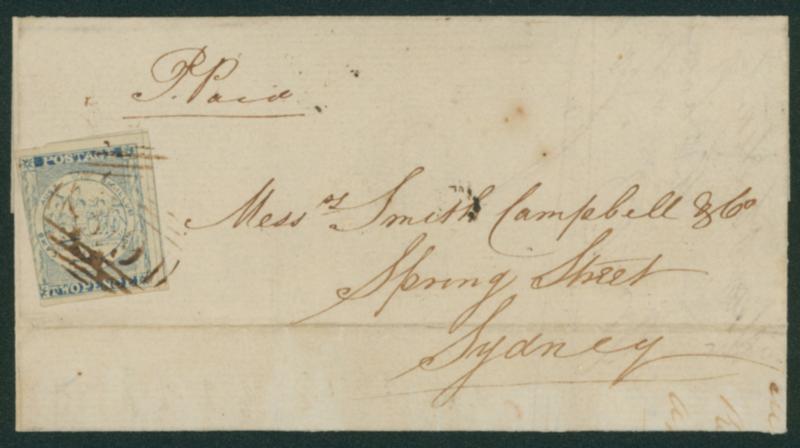 P. Paid
POSTAGE
Mess.rs Smith Campbell & Co
Spring Street
Sydney